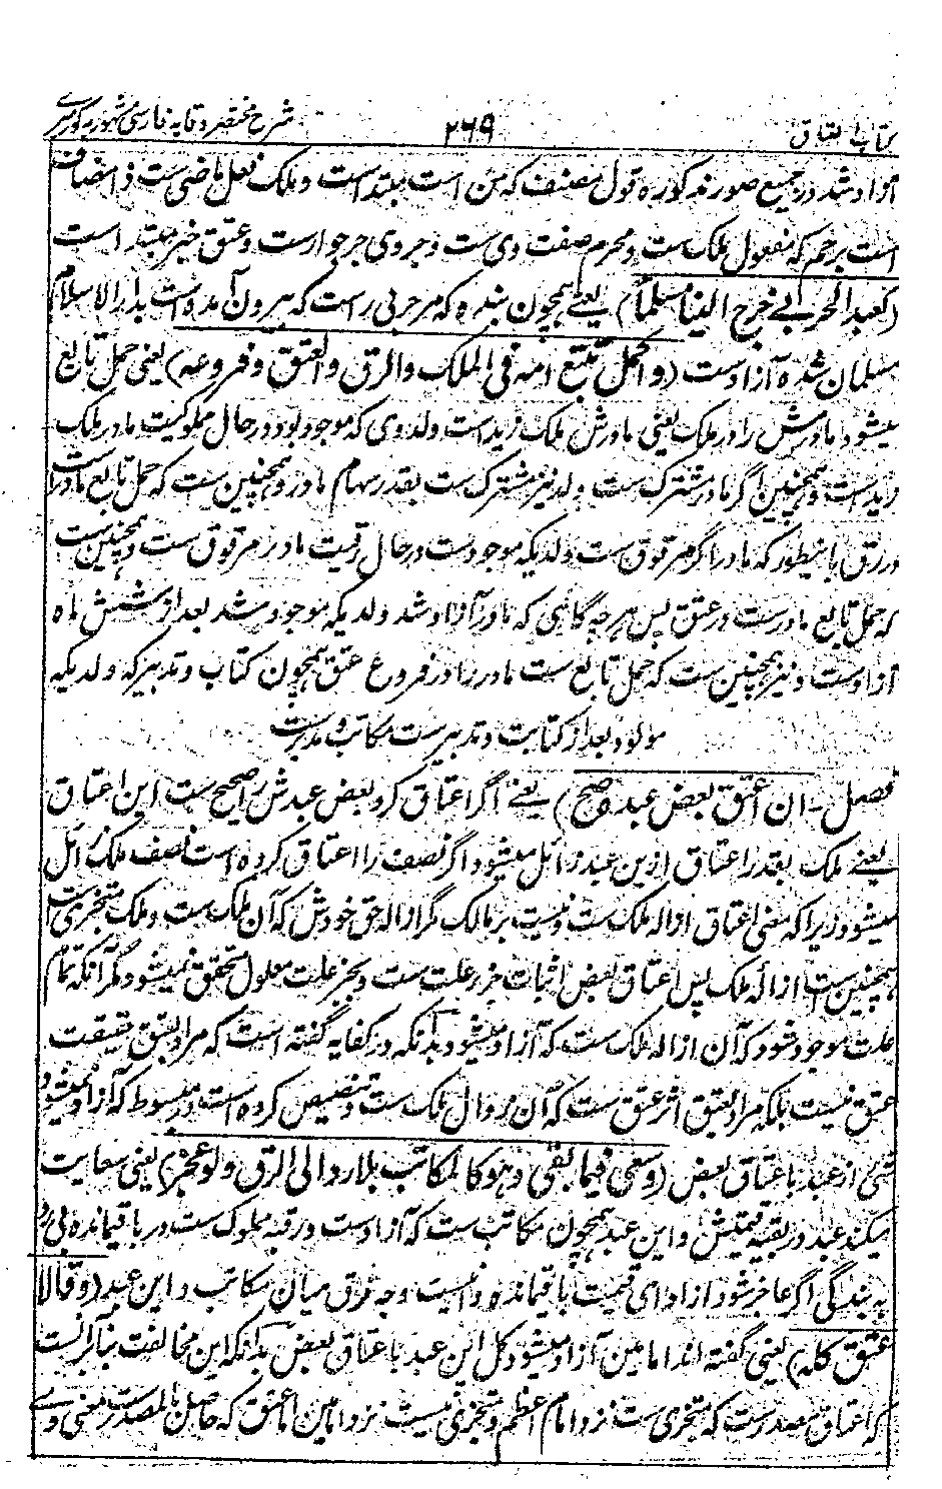 کتاب العتاق ۲۶۹ شرح مختصر وقایه فارسی مشهور به کورسری
آزاد شد در جمیع صور مذکوره قول مصنف که من است مبتداست و ملک فعل ماضی ست و مضاف
است برحم که مفعول ملک ست و محرم صفت وی ست و جر وی جر جوارست و عتق خبر مبتدا است
(کعبد الحربی خرج الینا مسلما) یعنی همچون بنده که مر حربی راست که بیرون آمده است بدارالاسلام
مسلمان شده آزادست (والحمل یتبع امه فی الملک والرق والعتق وفروعه) یعنی حمل تابع
میشود مادرش را در ملک یعنی مادرش ملک زیدست ولد وی که موجود بود در حال مملوکیت مادر ملک
زیدست و همچنین اگر مادر مشترک ست ولد نیز مشترک ست بقدر سهام مادر و همچنین ست که حمل تابع مادرست
در رق باینطور که مادر اگر مرقوق ست ولدیکه موجودست در حال رقیت مادر نیز مرقوق ست و همچنین ست
که حمل تابع مادرست در عتق پس هر چه گاهی که مادر آزاد شد ولدیکه موجود شد بعد از شش ماه
آزادست و نیز همچنین ست که حمل تابع ست مادر را در فروع عتق همچون کتابت و تدبیر که ولدیکه
مولود بعد از کتابت و تدبیرست مکاتب و مدبرست
فصل - ان اعتق بعض عبده صح) یعنی اگر اعتاق کرد بعض عبدش را صحیح ست این اعتاق
یعنی ملک بقدر اعتاق ازین عبد زائل میشود اگر نصف را اعتاق کرده است نصف ملک زائل
میشود زیرا که معنی اعتاق ازاله ملک ست و نیست بر مالک مگر ازاله حق خودش که آن ملک ست و ملک متجزی ست
همچنین ست ازالهٔ ملک پس اعتاق بعض اثبات جزء علت ست و بجزء علت معلول متحقق نمیشود مگر آنکه تمام
علت موجود شود که آن ازاله ملک ست که آزاد میشود بدانکه در کفایه گفته است که مراد بعتق حقیقت
عتق نیست بلکه مراد بعتق اثر عتق ست که آن زوال ملک ست و تنصیص کرده است در مبسوط که آزاد نمیشود
شئ از عبد با اعتاق بعض (وسعی فیما بقی وهو کالمکاتب بلا رد الی الرق ولو عجز) یعنی سعایت
میکند عبد در بقیه قیمتش و این عبد همچون مکاتب ست که آزادست و رقبه مملوک ست در باقیمانده بی رد
به بندگی اگر عاجز شود از ادای قیمت باقیمانده و نیست وجه فرق میان مکاتب و این عبد (وقالا
عتق کله) یعنی گفته اند امامین آزاد میشود کل این عبد با عتاق بعض بدانکه این مخالفت بنابر آنست
که اعتاق مصدرست که متجزی ست نزد امام اعظم و متجزی نیست نزد امامین اما عتق که حاصل بالمصدرست بمعنی وی